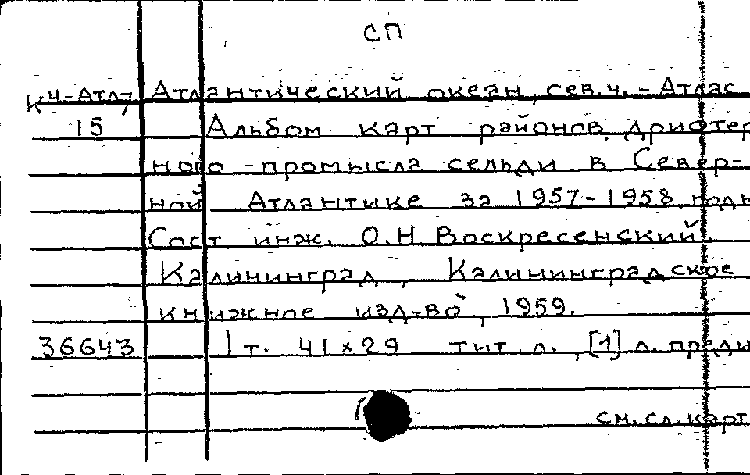 СП
К Ч-Атл, Атлантический океан, сев.ч. - Атлас
15 Альбом карт районов дрифтер
ного промысла сельди в Север-
ной Атлантике за 1957-1958 годы
Сост. инж. О.Н. Воскресенский.
Калининград, Калининградское
книжное изд-во, 1959.
36643 1 т. 41×29 тит. л., [1] л. преди
см. сл. карт